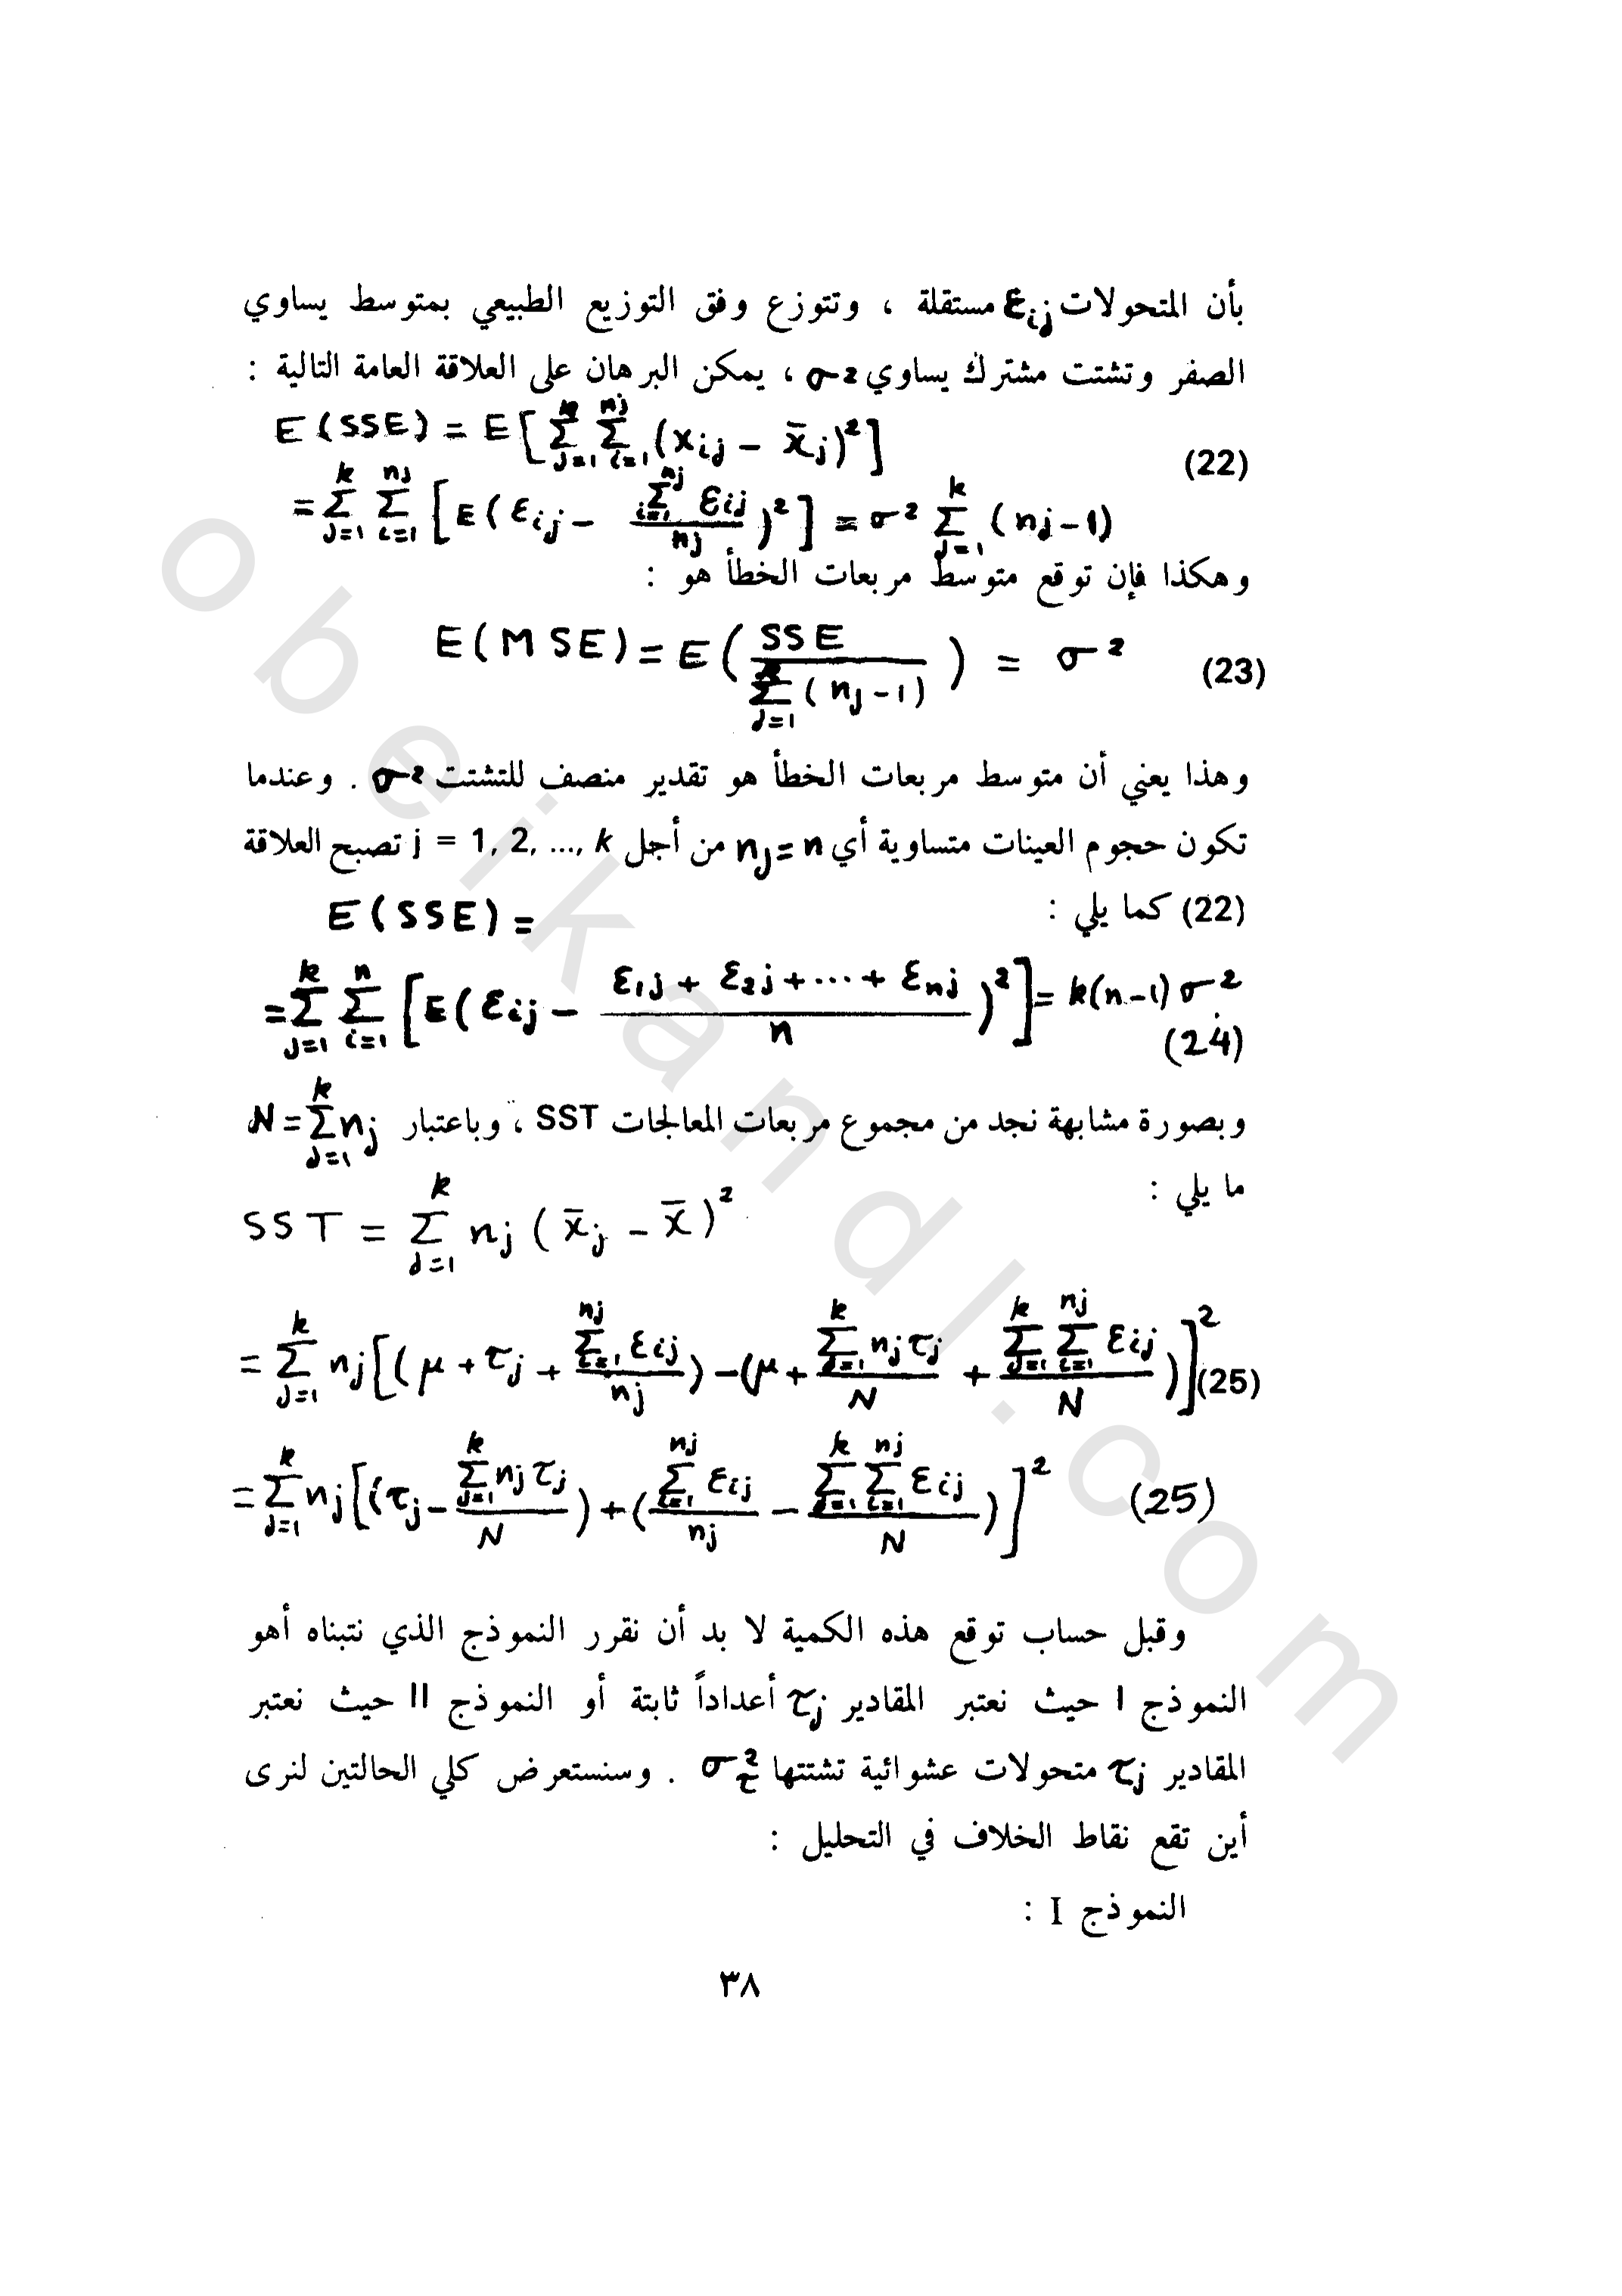 بأن المتحولات εij مستقلة ، وتتوزع وفق التوزيع الطبيعي بمتوسط يساوي
الصفر وتشتت مشترك يساوي σ² ، يمكن البرهان على العلاقة العامة التالية :
E (SSE) = E[∑_{j=1}^{k} ∑_{i=1}^{nj} (xij − x̄j)²]
(22)
= ∑_{j=1}^{k} ∑_{i=1}^{nj} [E(εij − (∑_{i=1}^{nj} εij)/nj)²] = σ² ∑_{j=1}^{k} (nj−1)
وهكذا فإن توقع متوسط مربعات الخطأ هو :
E(MSE) = E(SSE / ∑_{j=1}^{k} (nj−1)) = σ² (23)
وهذا يعني أن متوسط مربعات الخطأ هو تقدير منصف للتشتت σ² . وعندما
تكون حجوم العينات متساوية أي nj=n من أجل j = 1, 2, ..., k تصبح العلاقة
(22) كما يلي :
E (SSE) =
= ∑_{j=1}^{k} ∑_{i=1}^{n} [E(εij − (ε1j + ε2j + ... + εnj)/n)²] = k(n−1)σ²
(24)
وبصورة مشابهة نجد من مجموع مربعات المعالجات SST ، وباعتبار N = ∑_{j=1}^{k} nj
ما يلي :
SST = ∑_{j=1}^{k} nj (x̄j − x̄)²
= ∑_{j=1}^{k} nj[(μ + τj + (∑_{i=1}^{nj} εij)/nj) − (μ + (∑_{j=1}^{k} njτj)/N + (∑_{j=1}^{k} ∑_{i=1}^{nj} εij)/N)]² (25)
= ∑_{j=1}^{k} nj[(τj − (∑_{j=1}^{k} njτj)/N) + ((∑_{i=1}^{nj} εij)/nj − (∑_{j=1}^{k} ∑_{i=1}^{nj} εij)/N)]² (25)
وقبل حساب توقع هذه الكمية لا بد أن نقرر النموذج الذي نتبناه أهو
النموذج I حيث نعتبر المقادير τj أعداداً ثابتة أو النموذج II حيث نعتبر
المقادير τj متحولات عشوائية تشتتها σ²τ . وسنستعرض كلي الحالتين لنرى
أين تقع نقاط الخلاف في التحليل :
النموذج I :
٣٨
obeikandl.com